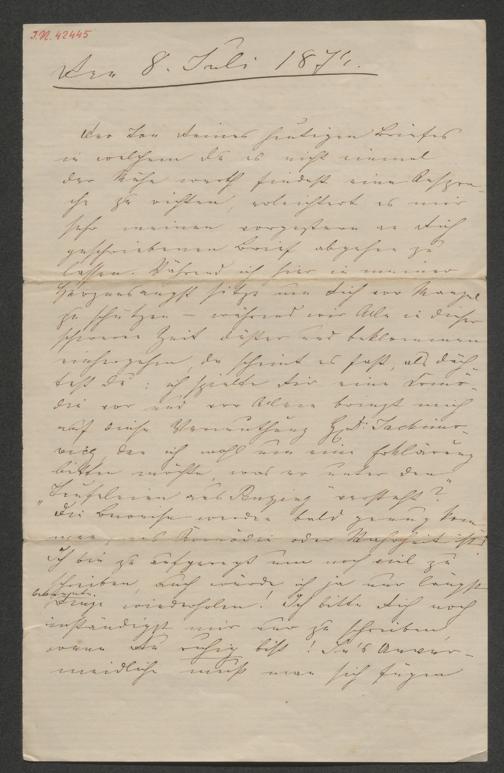 I.N. 42445
Den 8. Juli 1871.
Der Ton Deines heutigen Briefes
in welchem Du es nicht einmal
der Mühe werth findest eine Anspra-
che zu richten, erleichtert es mir
sehr meinen vorgestern an Dich
geschriebenen Brief abgehen zu
lassen. Während ich hier in meiner
Herzensangst sitze um Dich vor Mangel
zu schützen – während wir Alle in dieser
schweren Zeit düster und beklommen
umhergehen, da scheint es fast, als däch
test Du: ich spielte Dir eine Komö-
die vor und vor Allem bringt mich
auf diese Vermuthung H.
den ich wohl um eine Erklärung
bitten möchte, was er unter den
„Teufeleien aus Penzing" versteht?
Die Beweise werden bald genug kom
men, ob Komödie oder Wahrheit ist!
Ich bin zu aufgeregt um noch viel zu
schreiben, auch würde ich ja nur längst
bekannte
Dinge wiederholen! Ich bitte Dich noch
inständigst mir nur zu schreiben,
wenn Du ruhig bist! In's Unver-
meidliche muß man sich fügen